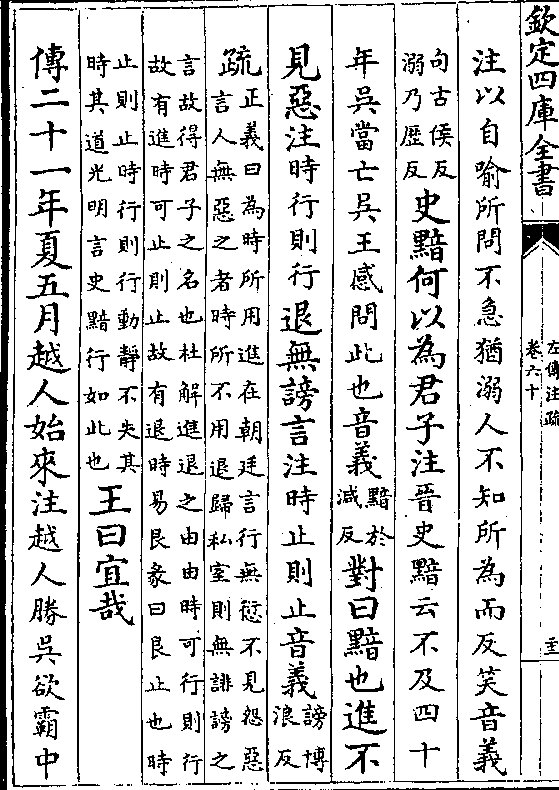 欽定四庫全書
左傳注疏
卷六十
注以自喻所問不急猶溺人不知所為而反笑音義
句古侯反
溺乃歷反
史黯何以為君子注晉史黯云不及四十
年吳當亡吳王感問此也音義
黯於
減反
對曰黯也進不
見惡注時行則行退無謗言注時止則止音義
謗博
浪反
疏
正義曰為時所用進在朝廷言行無愆不見怨惡
言人無惡之者時所不用退歸私室則無誹謗之
言故得君子之名也杜解進退之由由時可行則行
故有進時可止則止故有退時易艮彖曰艮止也時
止則止時行則行動靜不失其
時其道光明言史黯行如此也
王曰宜哉
傳二十一年夏五月越人始來注越人勝吳欲霸中